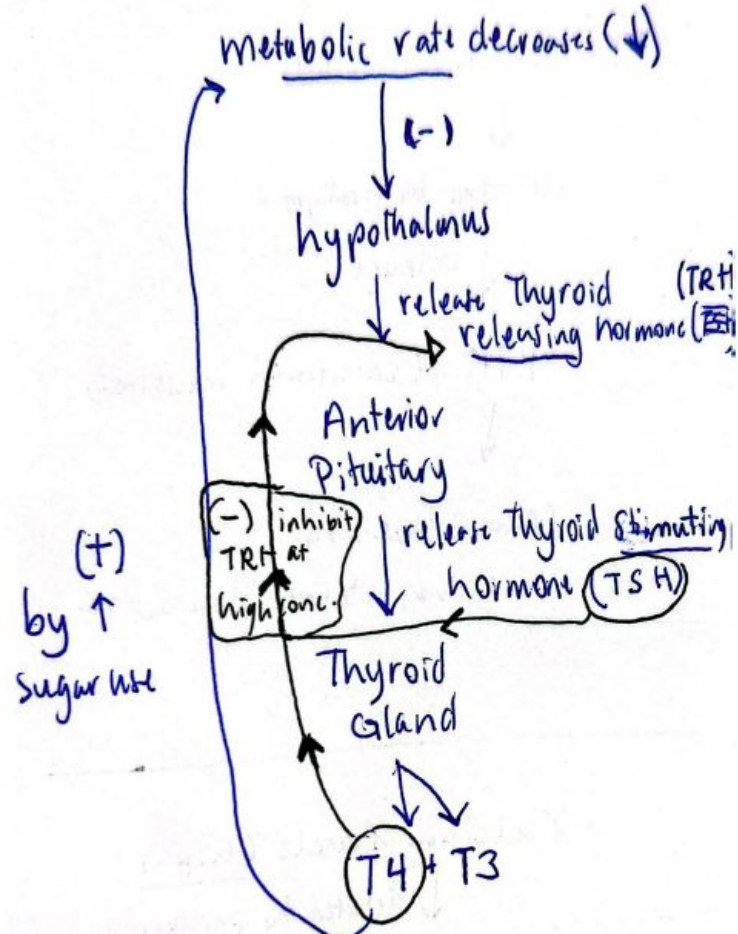 metabolic rate decreases (↓)
(-)
hypothalmus
release Thyroid (TRH
releasing hormone (
Anterior
Pituitary
(-) inhibit
TRH at
high conc.
release Thyroid Stimuting
hormone (TSH)
(+)
by ↑
sugar use
Thyroid
Gland
T4 + T3